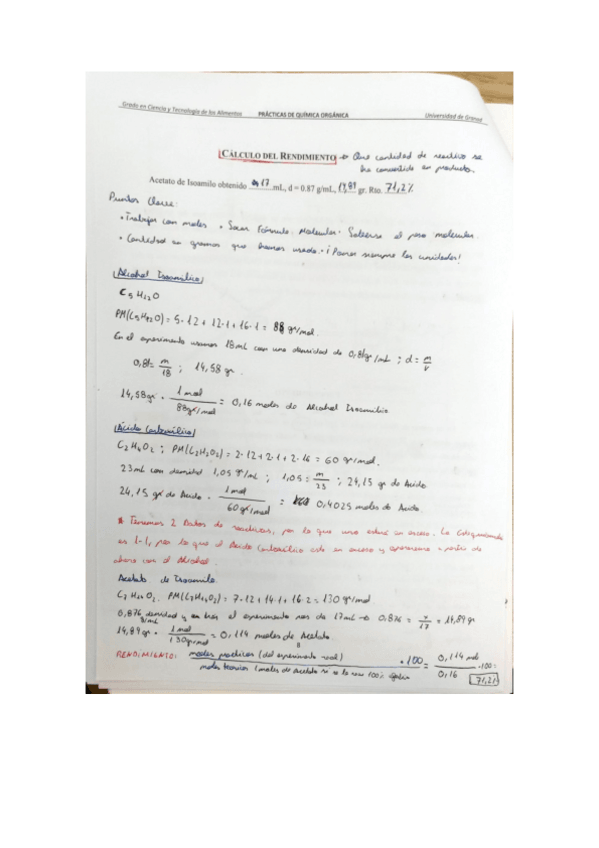 Grado en Ciencia y Tecnología de los Alimentos PRÁCTICAS DE QUÍMICA ORGÁNICA Universidad de Granad
CÁLCULO DEL RENDIMIENTO → Que cantidad de reactivo se
ha convertido en producto.
Acetato de Isoamilo obtenido 17 mL, d = 0.87 g/mL, 14,89 gr. Rto. 71,2%
Puntos Clave:
• Trabajar con moles • Sacar Fórmula Molecular • Saberse el peso molecular
• Cantidad en gramos que hemos usado. • ¡Poner siempre las unidades!
Alcohol Isoamílico
C5H12O
PM(C5H12O) = 5·12 + 12·1 + 16·1 = 88 gr/mol.
En el experimento usamos 18ml con una densidad de 0,81gr/ml ; d = m/v
0,81 = m/18 ; 14,58 gr.
14,58gr · 1 mol / 88gr/mol = 0,16 moles de Alcohol Isoamilio
Ácido Carboxílico
C2H4O2 ; PM(C2H4O2) = 2·12 + 2·1 + 2·16 = 60 gr/mol.
23ml con densidad 1,05 gr/mL ; 1,05 = m/23 ; 24,15 gr de Ácido
24,15 gr de Ácido · 1 mol / 60gr/mol = 0,4025 moles de Ácido.
* Tenemos 2 Datos de reactivos, por lo que uno estará en exceso. La Estequiometría
es 1-1, por lo que el Ácido Carboxílico está en exceso y operaremos a partir de
ahora con el Alcohol.
Acetato de Isoamilo.
C7H14O2. PM(C7H14O2) = 7·12 + 14·1 + 16·2 = 130 gr/mol.
0,876 densidad y en el experimento nos da 17ml → 0,876 = /17 = 14,89 gr
g/mL
14,89gr · 1 mol / 130gr/mol = 0,114 moles de Acetato
RENDIMIENTO: moles prácticos (del experimento real) / moles teóricos (moles de Acetato si 100% ) · 100 = 0,114 mol / 0,16 · 100 =
71,2%